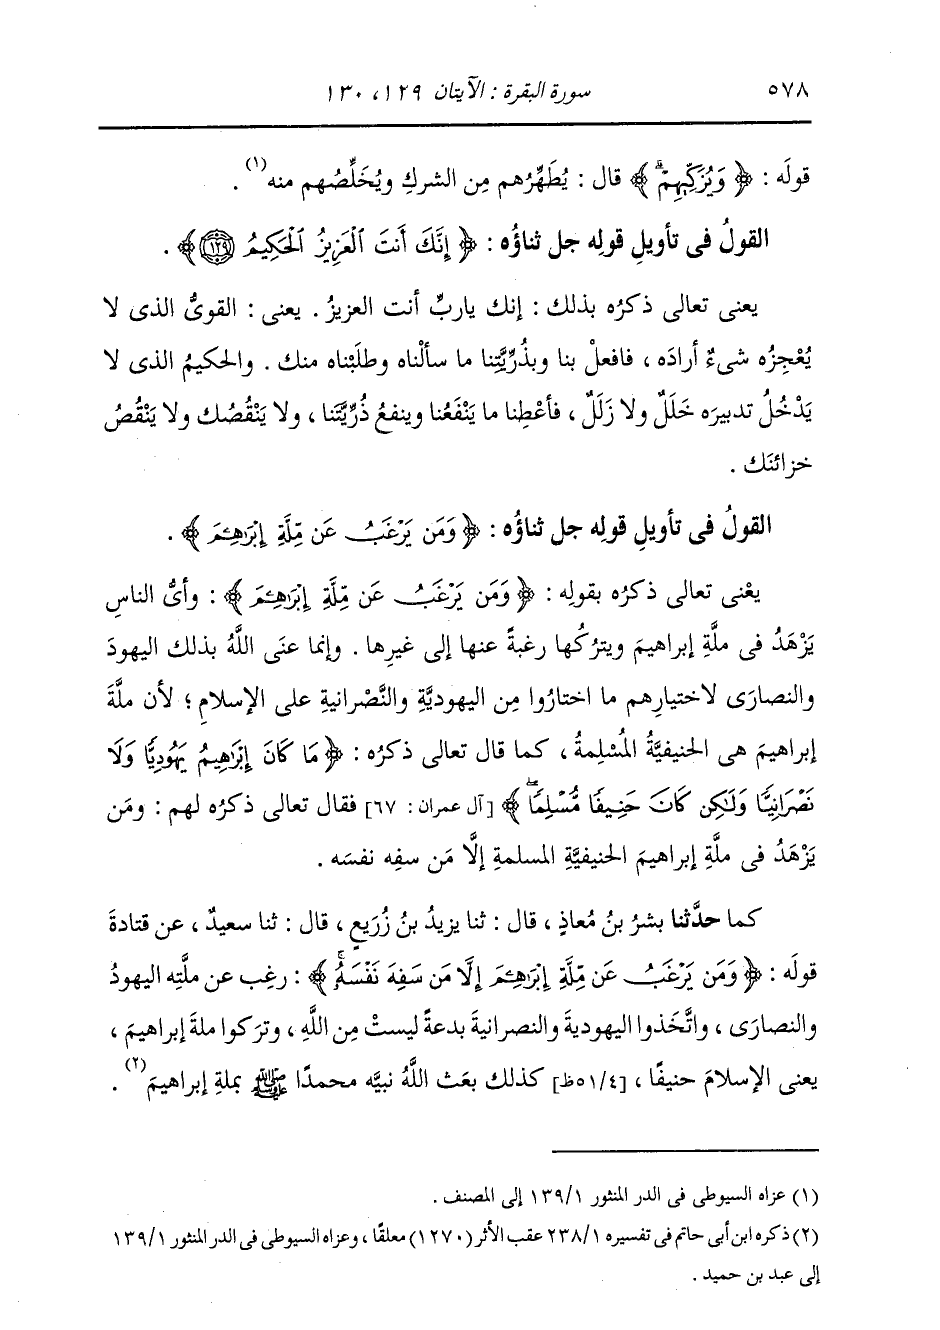 ٥٧٨ سورة البقرة : الآيتان ١٢٩، ١٣٠
قولَه : ﴿ وَيُزَكِّيهِمْ ﴾ قال : يُطَهِّرُهم مِن الشركِ ويُخَلِّصُهم منه(١) .
القولُ فى تأويلِ قولِه جل ثناؤُه : ﴿ إِنَّكَ أَنتَ الْعَزِيزُ الْحَكِيمُ ١٢٩ ﴾ .
يعنى تعالى ذكرُه بذلك : إنك ياربِّ أنت العزيزُ . يعنى : القوىُّ الذى لا
يُعْجِزُه شىءٌ أرادَه ، فافعلْ بنا وبذُرِّيَّتِنا ما سألْناه وطلَبْناه منك . والحكيمُ الذى لا
يَدْخُلُ تدبيرَه خَلَلٌ ولا زَلَلٌ ، فأعْطِنا ما يَنْفَعُنا وينفعُ ذُرِّيَّتَنا ، ولا يَنْقُصُك ولا يَنْقُصُ
خزائنَك .
القولُ فى تأويلِ قولِه جل ثناؤُه : ﴿ وَمَن يَرْغَبُ عَن مِّلَّةِ إِبْرَاهِيمَ ﴾ .
يعْنى تعالى ذكرُه بقولِه : ﴿ وَمَن يَرْغَبُ عَن مِّلَّةِ إِبْرَاهِيمَ ﴾ : وأىُّ الناسِ
يَزْهَدُ فى ملَّةِ إبراهيمَ ويترُكُها رغبةً عنها إلى غيرِها . وإنما عنَى اللَّهُ بذلك اليهودَ
والنصارَى لاختيارِهم ما اختارُوا مِن اليهوديَّةِ والنَّصْرانيةِ على الإسلامِ ؛ لأن ملَّةَ
إبراهيمَ هى الحنيفيَّةُ المُسْلِمةُ ، كما قال تعالى ذكرُه : ﴿ مَا كَانَ إِبْرَاهِيمُ يَهُودِيًّا وَلَا
نَصْرَانِيًّا وَلَٰكِن كَانَ حَنِيفًا مُّسْلِمًا ﴾ [آل عمران : ٦٧] فقال تعالى ذكرُه لهم : ومَن
يَزْهَدُ فى ملَّةِ إبراهيمَ الحنيفيَّةِ المسلمةِ إلَّا مَن سفِه نفسَه .
كما حدَّثنا بشرُ بنُ مُعاذٍ ، قال : ثنا يزيدُ بنُ زُرَيعٍ ، قال : ثنا سعيدٌ ، عن قتادةَ
قولَه : ﴿ وَمَن يَرْغَبُ عَن مِّلَّةِ إِبْرَاهِيمَ إِلَّا مَن سَفِهَ نَفْسَهُ ﴾ : رغِب عن ملَّتِه اليهودُ
والنصارَى ، واتَّخَذوا اليهوديةَ والنصرانيةَ بدعةً ليستْ مِن اللَّهِ ، وترَكوا ملةَ إبراهيمَ ،
يعنى الإسلامَ حنيفًا ، [٥١/٤ظ] كذلك بعَث اللَّهُ نبيَّه محمدًا ﷺ بملةِ إبراهيمَ(٢) .
(١) عزاه السيوطى فى الدر المنثور ١٣٩/١ إلى المصنف .
(٢) ذكره ابن أبى حاتم فى تفسيره ٢٣٨/١ عقب الأثر (١٢٧٠) معلقًا ، وعزاه السيوطى فى الدر المنثور ١٣٩/١
إلى عبد بن حميد .